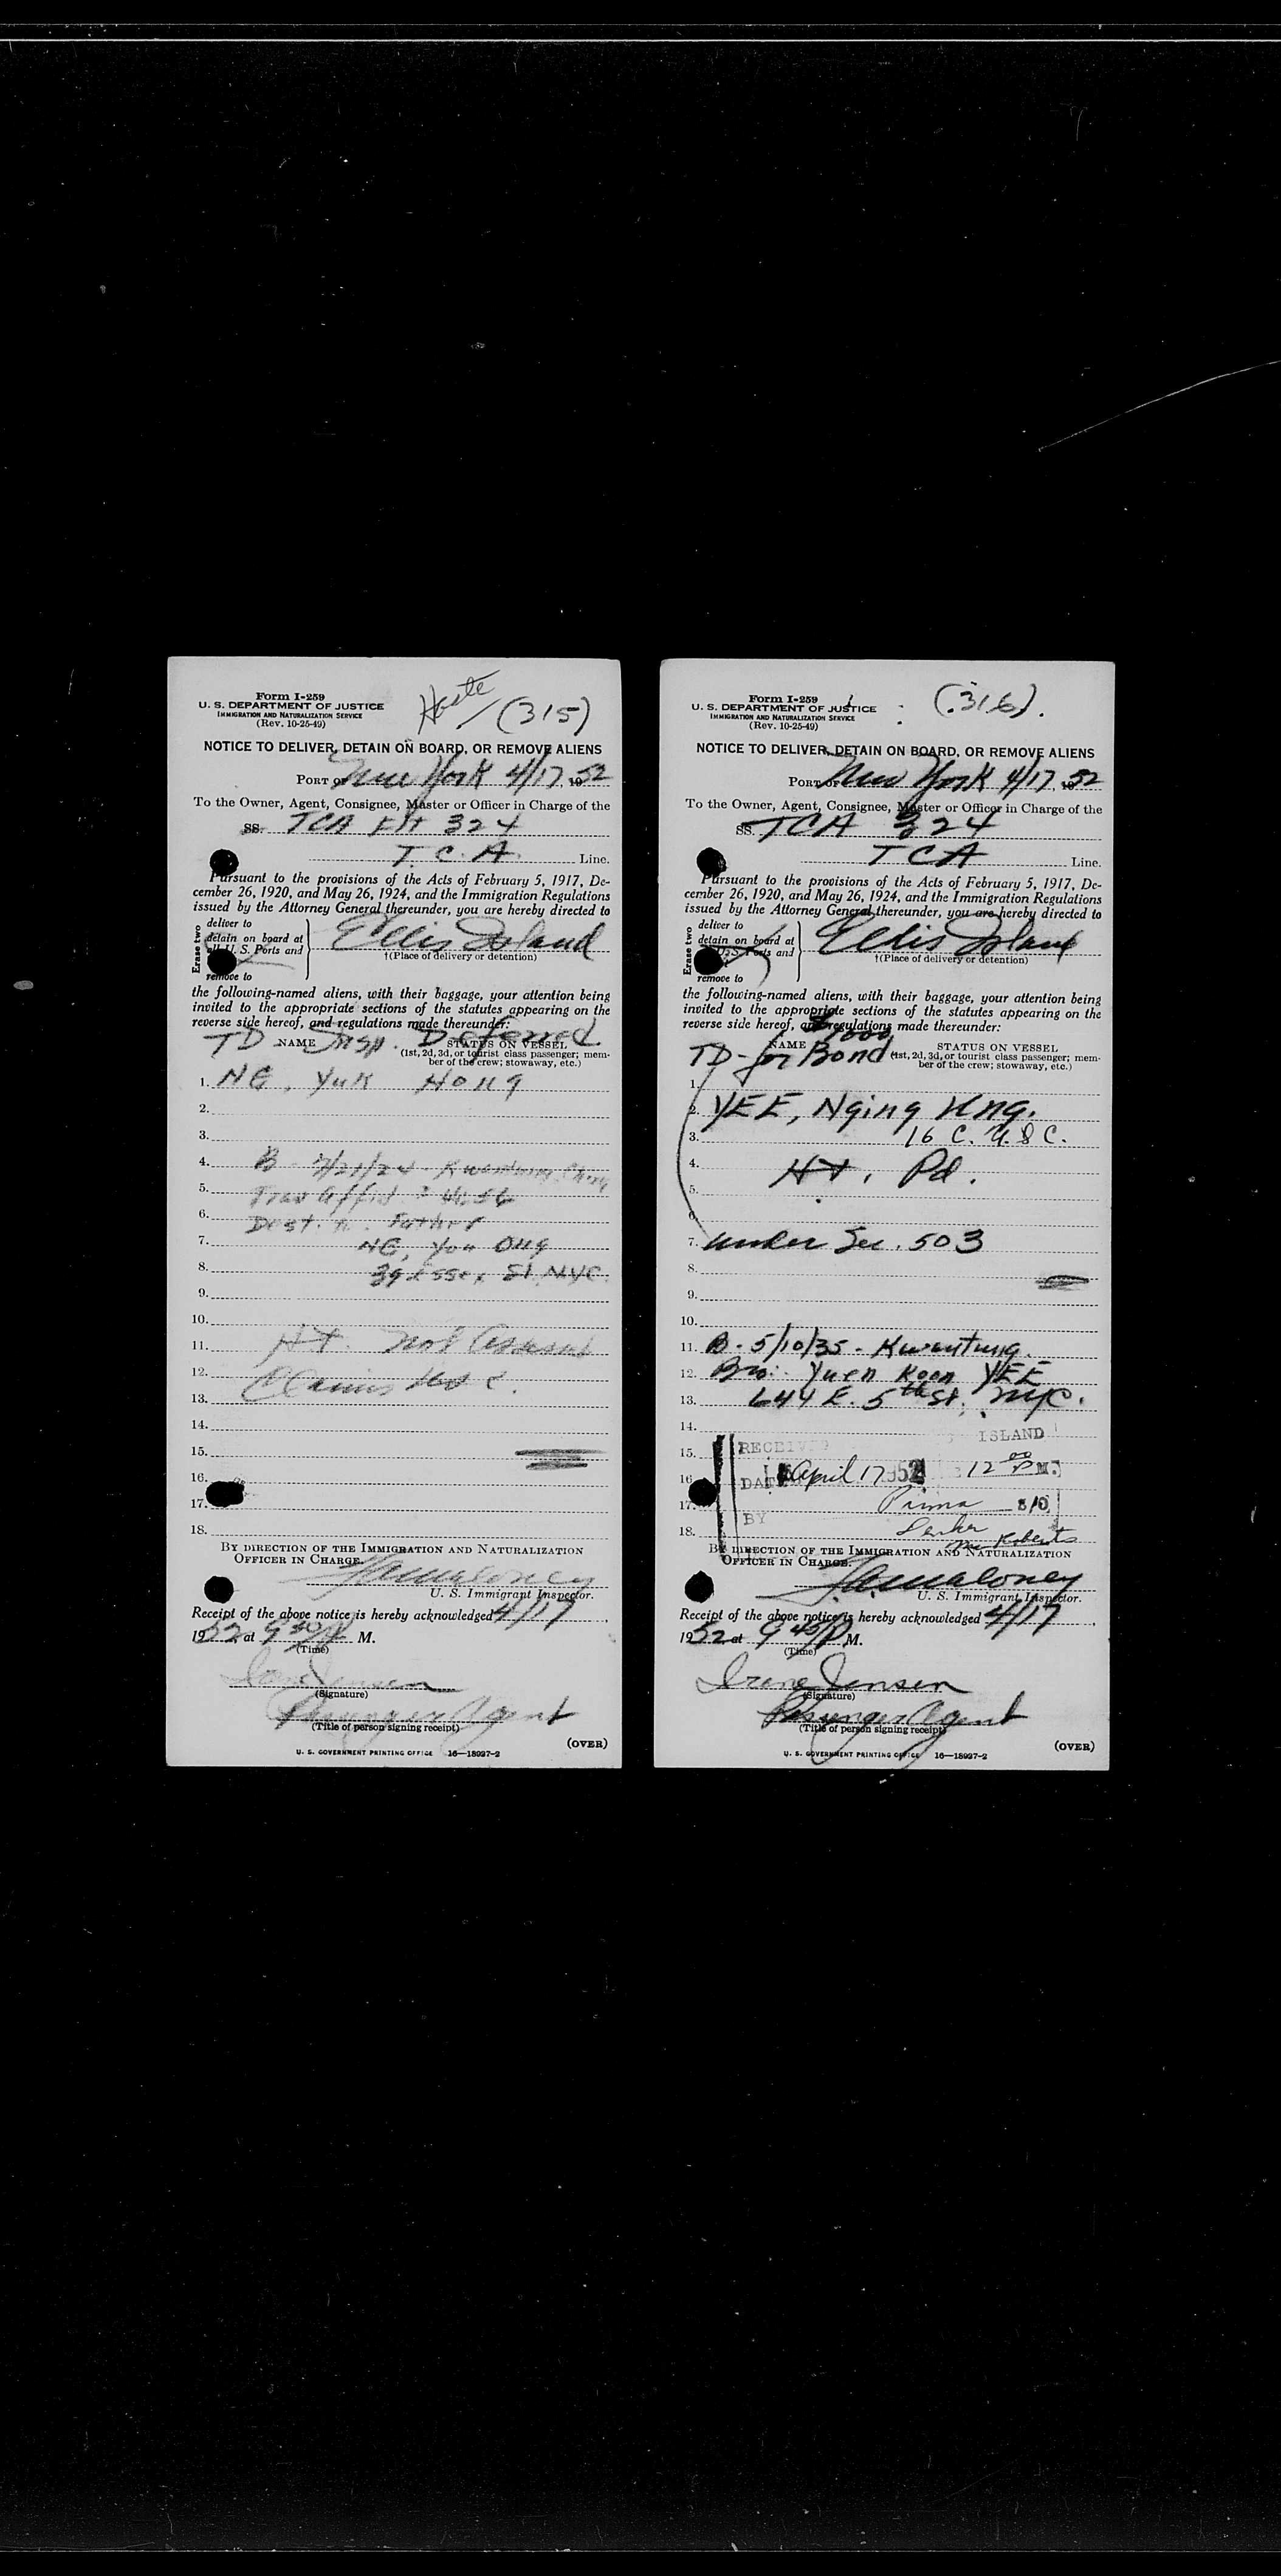 Form I-259
U. S. DEPARTMENT OF JUSTICE
IMMIGRATION AND NATURALIZATION SERVICE
(Rev. 10-25-49)
(315)
NOTICE TO DELIVER, DETAIN ON BOARD, OR REMOVE ALIENS
PORT OF New York 4/17, 1952
To the Owner, Agent, Consignee, Master or Officer in Charge of the
SS. TCA Flt 324
T. C. A. Line.
Pursuant to the provisions of the Acts of February 5, 1917, De-
cember 26, 1920, and May 26, 1924, and the Immigration Regulations
issued by the Attorney General thereunder, you are hereby directed to
Erase two
deliver to
detain on board at
all U. S. Ports and
remove to
Ellis Island
†(Place of delivery or detention)
the following-named aliens, with their baggage, your attention being
invited to the appropriate sections of the statutes appearing on the
reverse side hereof, and regulations made thereunder:
TD Insp. Deferred
NAME STATUS ON VESSEL
(1st, 2d, 3d, or tourist class passenger; mem-
ber of the crew; stowaway, etc.)
1. NG, Yuk Hong
2.
3.
4. B - 7/21/24 - Kwantung, China
5. Trav Affid
6. Dest. to Father
7. NG, You Ong
8. 39 Essex St NYC
9.
10.
11. HT. not
12. Claims
13.
14.
15.
16.
17.
18.
BY DIRECTION OF THE IMMIGRATION AND NATURALIZATION
OFFICER IN CHARGE.
U. S. Immigrant Inspector.
Receipt of the above notice is hereby acknowledged 4/17,
1952 at 9 M.
(Time)
Jensen
(Signature)
Passenger Agent
(Title of person signing receipt)
(OVER)
U. S. GOVERNMENT PRINTING OFFICE 16—18927-2
Form I-259
U. S. DEPARTMENT OF JUSTICE
IMMIGRATION AND NATURALIZATION SERVICE
(Rev. 10-25-49)
(316).
NOTICE TO DELIVER, DETAIN ON BOARD, OR REMOVE ALIENS
PORT OF New York 4/17, 1952
To the Owner, Agent, Consignee, Master or Officer in Charge of the
SS. TCA 324
TCA Line.
Pursuant to the provisions of the Acts of February 5, 1917, De-
cember 26, 1920, and May 26, 1924, and the Immigration Regulations
issued by the Attorney General thereunder, you are hereby directed to
Erase two
deliver to
detain on board at
U. S. Ports and
remove to
Ellis Island
†(Place of delivery or detention)
the following-named aliens, with their baggage, your attention being
invited to the appropriate sections of the statutes appearing on the
reverse side hereof, and regulations made thereunder:
$1000
TD - for Bond
NAME STATUS ON VESSEL
(1st, 2d, 3d, or tourist class passenger; mem-
ber of the crew; stowaway, etc.)
1.
2. YEE, Nging Hng.
3. 16 C. U S C.
4. HT. Pd.
5.
6.
7. under Sec. 503
8.
9.
10.
11. B - 5/10/35 - Kwantung.
12. Bro: Yuen Koon YEE
13. 644 E. 5th St. NYC.
14. ISLAND
15. RECEIVED
16. DATE April 17 1952 12 00 P M.
17. BY
18. Roberts
BY DIRECTION OF THE IMMIGRATION AND NATURALIZATION
OFFICER IN CHARGE.
U. S. Immigrant Inspector.
Receipt of the above notice is hereby acknowledged 4/17,
1952 at 9 45 P M.
(Time)
Irene Jensen
(Signature)
Passenger Agent
(Title of person signing receipt)
(OVER)
U. S. GOVERNMENT PRINTING OFFICE 16—18927-2